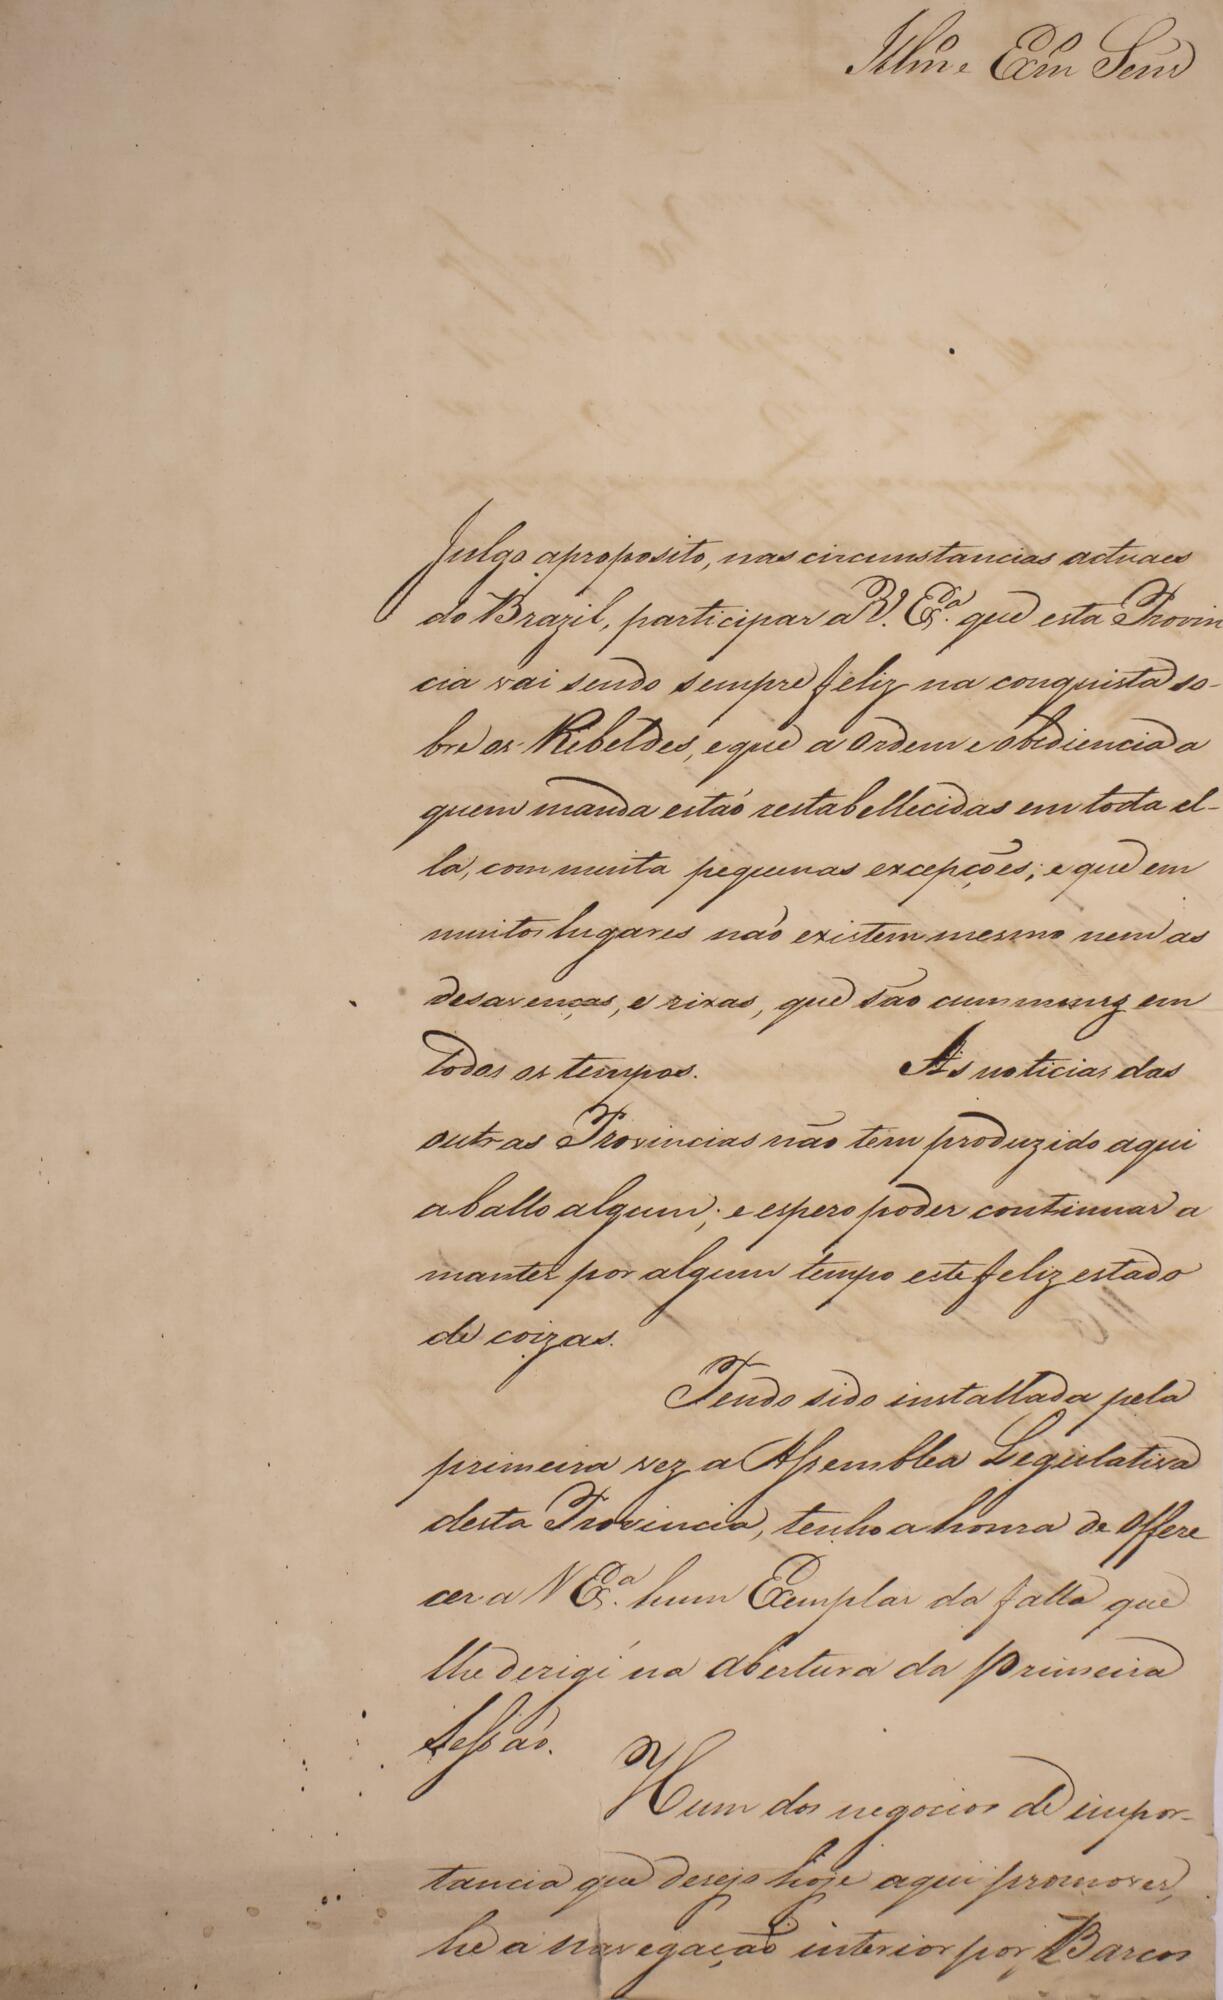 Illmo e Exmo Senr
Julgo aproposito, nas circunstancias actuaes
do Brazil, participar a V. Exa. que esta Provin
cia vai sendo sempre feliz na conquista so-
bre os Rebeldes, e que a Ordem e obediencia a
quem manda estão restabellecidas em toda el-
la, com muita pequenas excepções; e que em
muitos lugares não existem mesmo nem as
desavenças, e rixas, que são cummuns em
todos os tempos. As noticias das
outras Provincias não tem produzido aqui
aballo algum; e espero poder continuar a
manter por algum tempo este feliz estado
de coizas.
Tendo sido installada pela
primeira vez a Assemblea Legislativa
desta Provincia, tenho a honra de offere
cer a V Exa. hum Exemplar da falla que
lhe derigi na abertura da primeira
Sessão.
Hum dos negocios de impor-
tancia que desejo hoje aqui promover,
he a navegação interior por Barcos